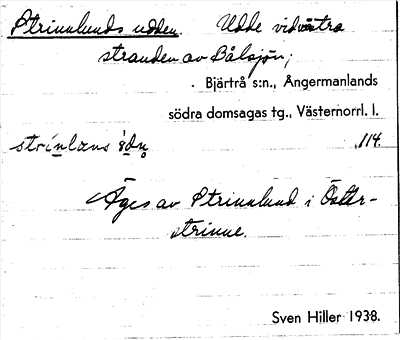 Strinnlunds udden. Udde vid västra
stranden av Bålsjön,
Bjärtrå s:n., Ångermanlands
södra domsagas tg., Västernorrl. l.
114.
Äges av Strinnlund i Öster-
strinne.
Sven Hiller 1938.